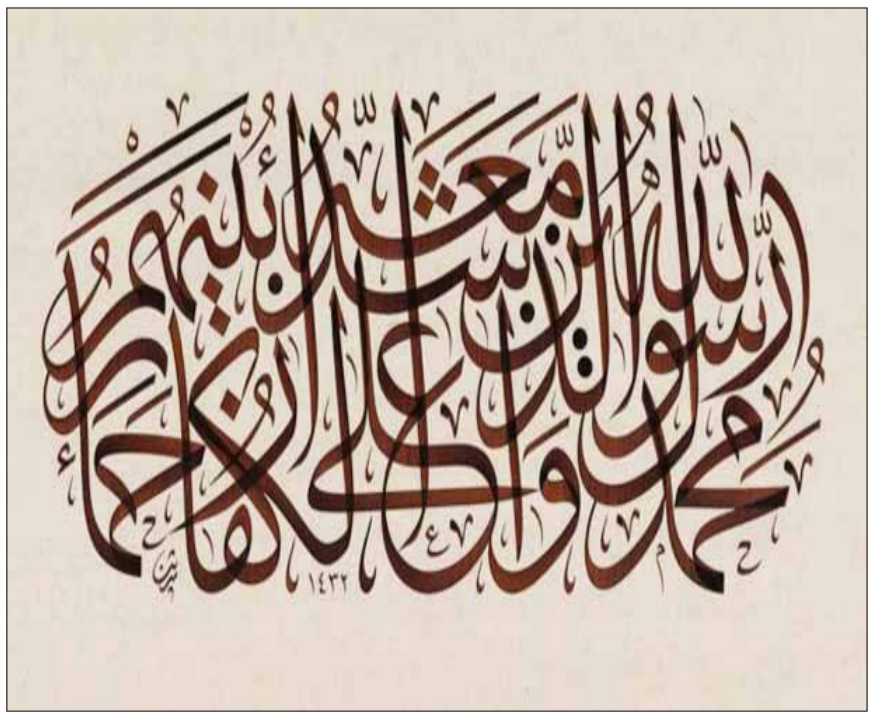 محمد رسول الله والذين معه أشداء على الكفار رحماء بينهم
١٤٣٢